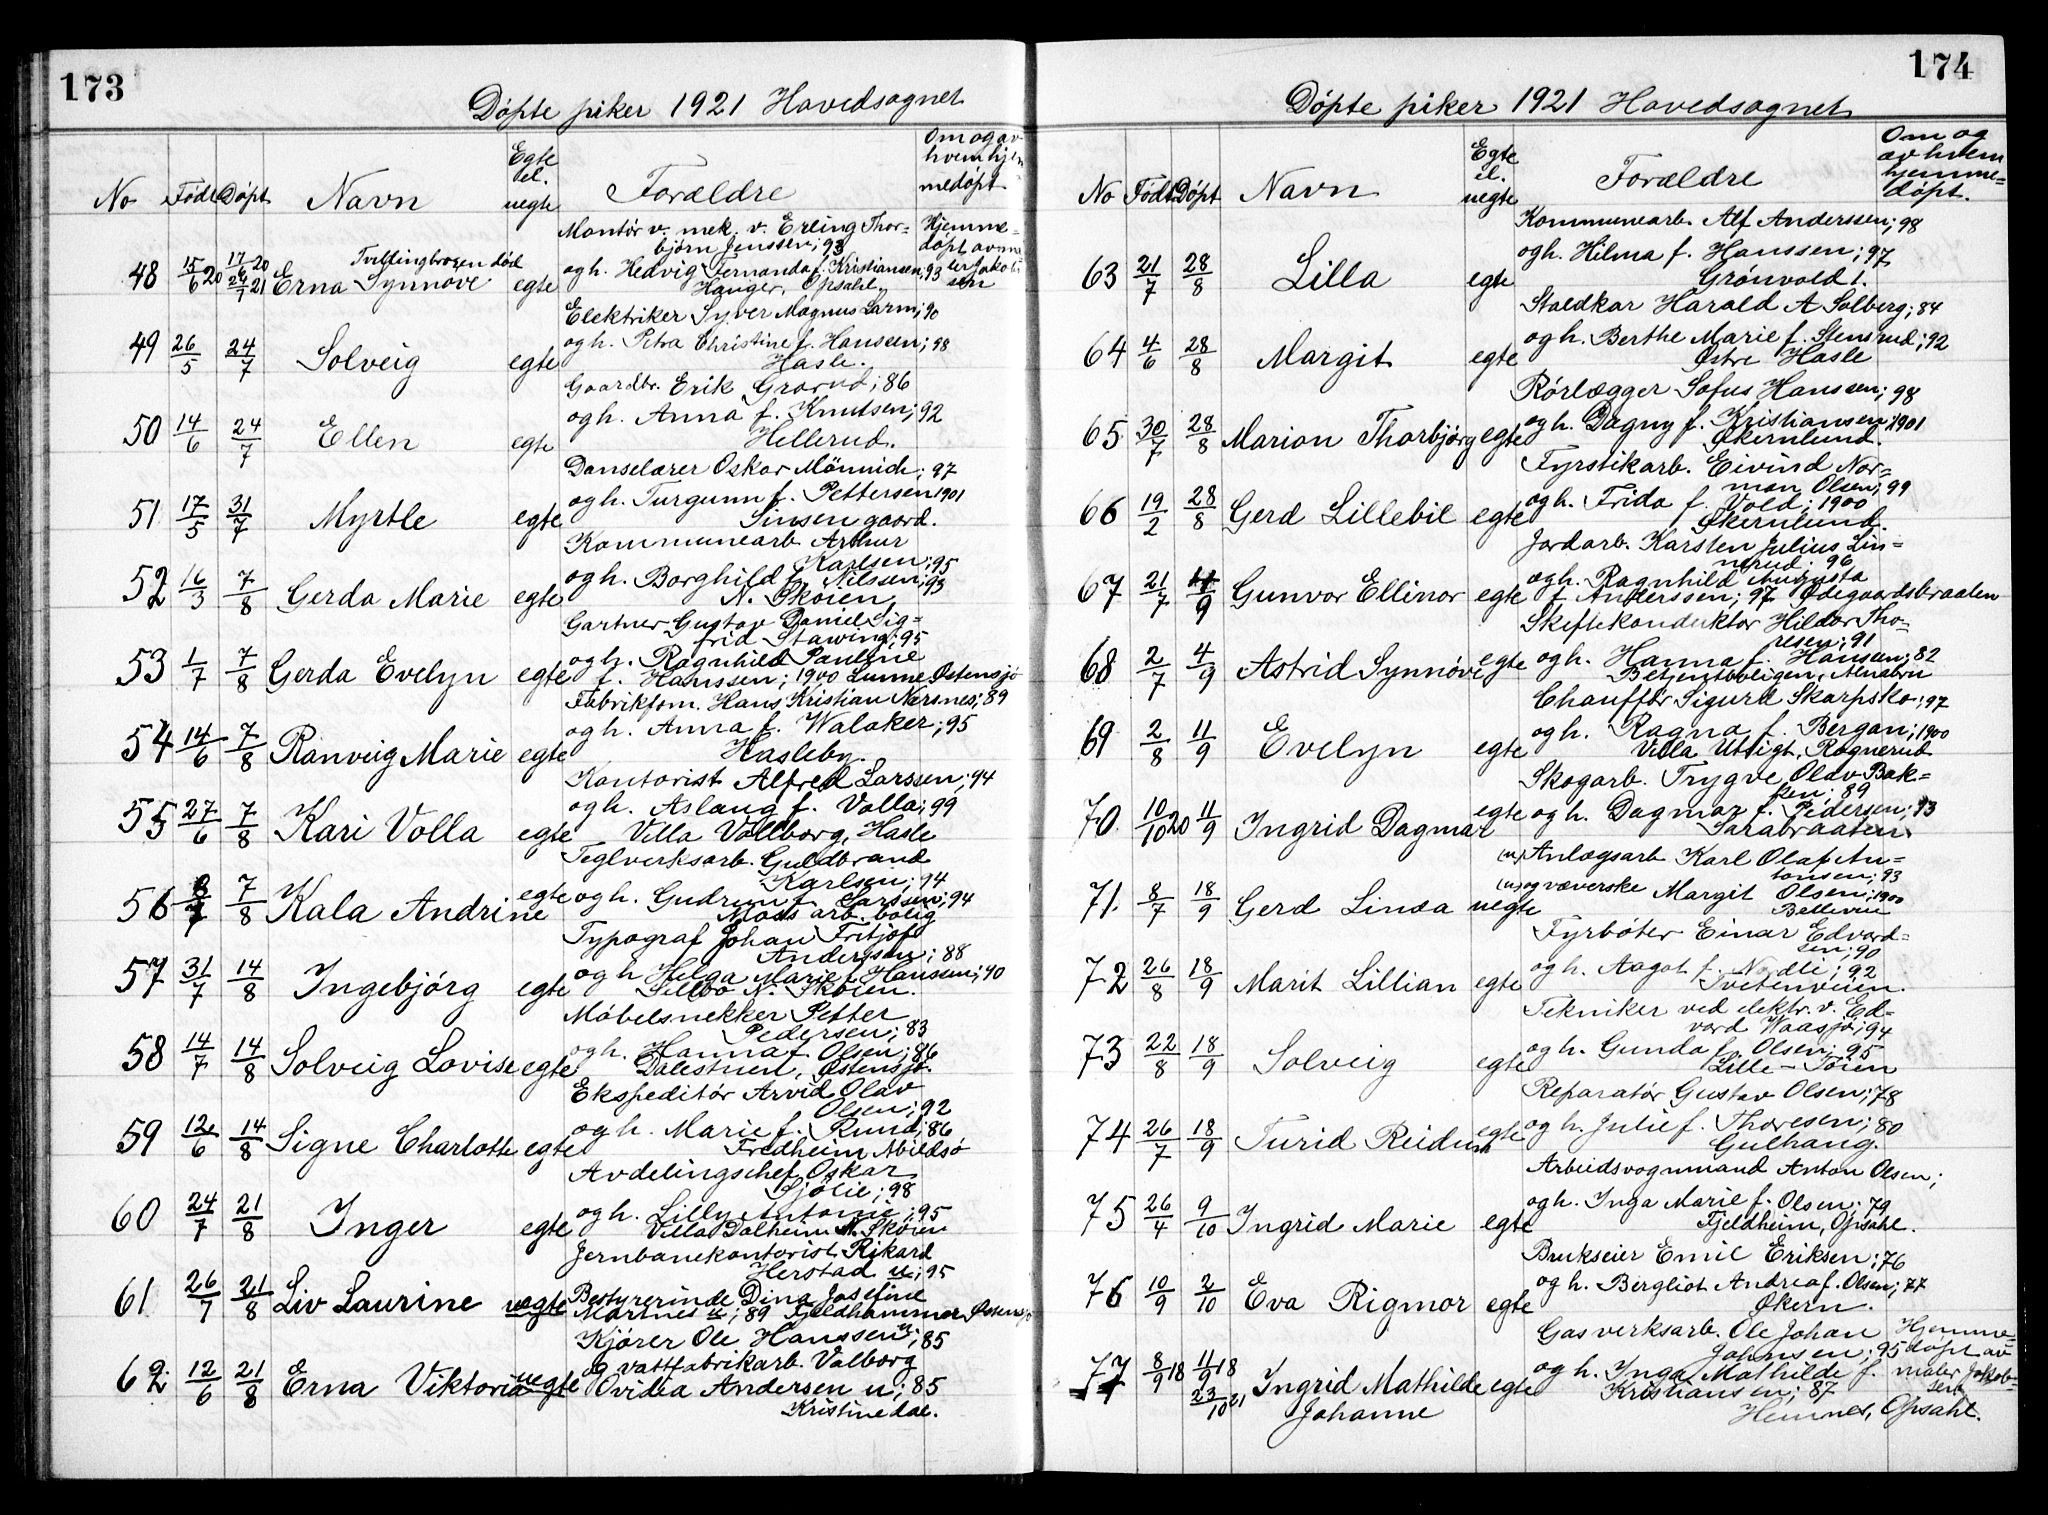 173
Döpte piker 1921 Hovedsognet
No Födt Döpt Navn Egte el. uegte Forældre Om og av hvem hjemmedöpt
Montör v. mek. v. Erling Thor=
björn Jenssen; 93
48 15/6 20 17/6 20 24/7 21 Tvillingbroren död
Erna Synnöve egte og h. Hedvig Fernanda f. Kristiansen; 93
Hauger, Opsahl.
Hjemme=
döpt av ma
ler Jakob
sen
Elektriker Syver Magnus Larm; 90
49 26/5 24/7 Solveig egte og h. Petra Christine f. Hansen; 98
Hasle.
Gaardbr. Erik Grorud; 86
50 14/6 24/7 Ellen egte og h. Anna f. Knutsen; 92
Hellerud.
Danselærer Oskar Männich; 97
51 17/5 31/7 Myrtle egte og h. Turgunn f. Pettersen 1901
Sinsen gaard.
Kommunearb. Arthur
Karlsen; 95
52 16/3 7/8 Gerda Marie egte og h. Borghild f. Nilsen; 93
N. Sköien
Gartner Gustav Daniel Sig=
frid Stawing; 95
53 1/7 7/8 Gerda Evelyn egte og h. Ragnhild Pauline
f. Hanssen; 1900 Lunne Östensjö
Fabrikfom. Hans Kristian Narsnes; 89
54 14/6 7/8 Ranveig Marie egte og h. Anna f. Walaker; 95
Hasleby.
Kontorist Alfred Larssen; 94
55 27/6 7/8 Kari Volla egte og h. Aslaug f. Volla; 99
Villa Vollborg, Hasle
Teglverksarb. Guldbrand
Karlsen; 94
56 7/8 Kala Andrine egte og h. Gudrun f. Larssen; 94
Moss arb. bolig
Typograf Johan Fritjof
Andersen; 88
57 31/7 14/8 Ingebjörg egte og h. Helga Marie f. Hansen; 90
Lillebo N. Sköien.
Möbelsnekker Petter
Pedersen; 83
58 14/7 14/8 Solveig Lovise egte og h. Hanna f. Olsen; 86
Dalestuen, Östensjö.
Ekspeditör Arvid Olav
Olsen; 92
59 12/6 14/8 Signe Charlotte egte og h. Marie f. Rund; 86
Fredheim Abildsö
Avdelingschef Oskar
Sjölie; 98
60 24/7 21/8 Inger egte og h. Lilly Antonie; 95
Villa Dalheim N. Skören
Jernbanekontorist Rikard
Herstad u; 95
61 26/7 21/8 Liv Laurine uegte Bestyrerinde Dina Josefine
Marnes u; 89 Fjeldhammer Östensjö
Kjörer Ole Hanssen u; 85
62 12/6 21/8 Erna Viktoria uegte & vattfabrikarb. Valborg
Ovidia Andersen u; 85
Kristinedal.
174
Döpte piker 1921 Hovedsognet
No Födt Döpt Navn Egte el. uegte Forældre Om og av hvem hjemme=döpt.
Kommunearb. Alf Anderssen; 98
63 21/7 28/8 Lilla egte og h. Hilma f. Hanssen; 97
Grönvold 1.
Staldkar Harald A Solberg; 84
64 4/6 28/8 Margit egte og h. Berthe Marie f. Stensrud; 92
Östre Hasle
Rörlægger Sofus Hanssen; 98
65 30/7 28/8 Marion Thorbjörg egte og h. Dagny f. Kristiansen; 1901
Ökernlund.
Fyrstikarb. Eivind Nor=
man Olsen; 99
66 19/2 28/8 Gerd Lillebil egte og h. Frida f. Vold; 1900
Ökernlund.
Jordarb. Karsten Julius Lin=
nerud; 96
67 21/7 4/9 Gunvor Ellinor egte og h. Ragnhild Augusta
f. Anderssen; 97 Ödegaardsbraaten
Skiftekonduktör Hildor Tho=
resen; 91
68 2/7 4/9 Astrid Synnöve egte og h. Hanna f. Hansen; 82
Betjentboligen, Alnabru
Chaufför Sigurd Skarpsko; 97
69 2/8 11/9 Evelyn egte og h. Ragna f. Bergan; 1900
Villa Utsigt, Rognerud
Skogarb. Trygve Olav Bak=
ken; 89
70 10/10 20 11/9 Ingrid Dagmar egte og h. Dagmar f. Pedersen; 93
Sarabraaten
(u) Anlægsarb Karl Olaf An=
tonsen; 93
71 8/7 18/9 Gerd Linda uegte (u) og væverske Margit Olsen; 1900
Bellevue
Fyrböter Einar Edvard=
sen; 90
72 26/8 18/9 Marit Lillian egte og h. Aagot f. Nordli; 92
Tvetenveien.
Tekniker ved elektr. v. Ed=
vard Waasjö; 94
73 22/8 18/9 Solveig egte og h. Gunda f. Olsen; 95
Lille-Töien
Reparatör Gustav Olsen; 78
74 26/7 18/9 Turid Reidun egte og h. Julie f. Thoresen; 80
Gulhaug.
Arbeidsvognmand Anton Olsen;
75 26/4 9/10 Ingrid Marie egte og h. Inga Marie f. Olsen; 79
Fjeldheim, Opsahl.
Brukseier Emil Eriksen; 76
76 10/9 2/10 Eva Rigmor egte og h. Bergliot Andrea f. Olsen; 77
Ökern.
Gasverksarb. Ole Johan
Johnsen; 95
77 8/9 18 11/9 18 23/10 21 Ingrid Mathilde
Johanne egte og h. Inga Mathilde f.
Kristiansen; 87
Hemnes, Opsahl.
Hjemme=
döpt av
maler Jakob=
sen